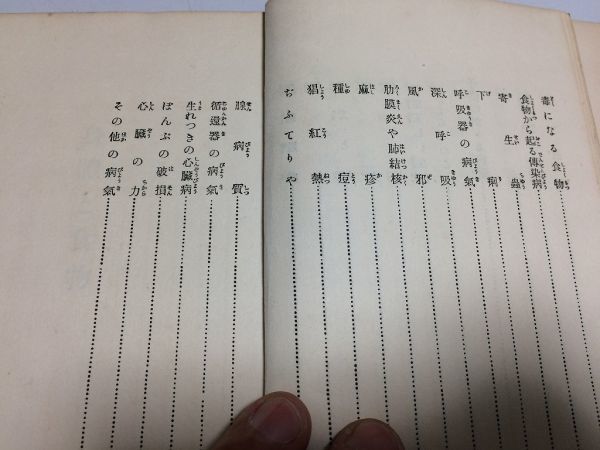 毒になる食物
食物から起る傳染病
寄生蟲
下痢
呼吸器の病氣
深呼吸
風邪
肋膜炎や肺結核
麻疹
種痘
猖紅熱
ぢふてりや
腺病質
循還器の病氣
生れつきの心臓病
ぽんぷの破損
心臓の力
その他の病氣